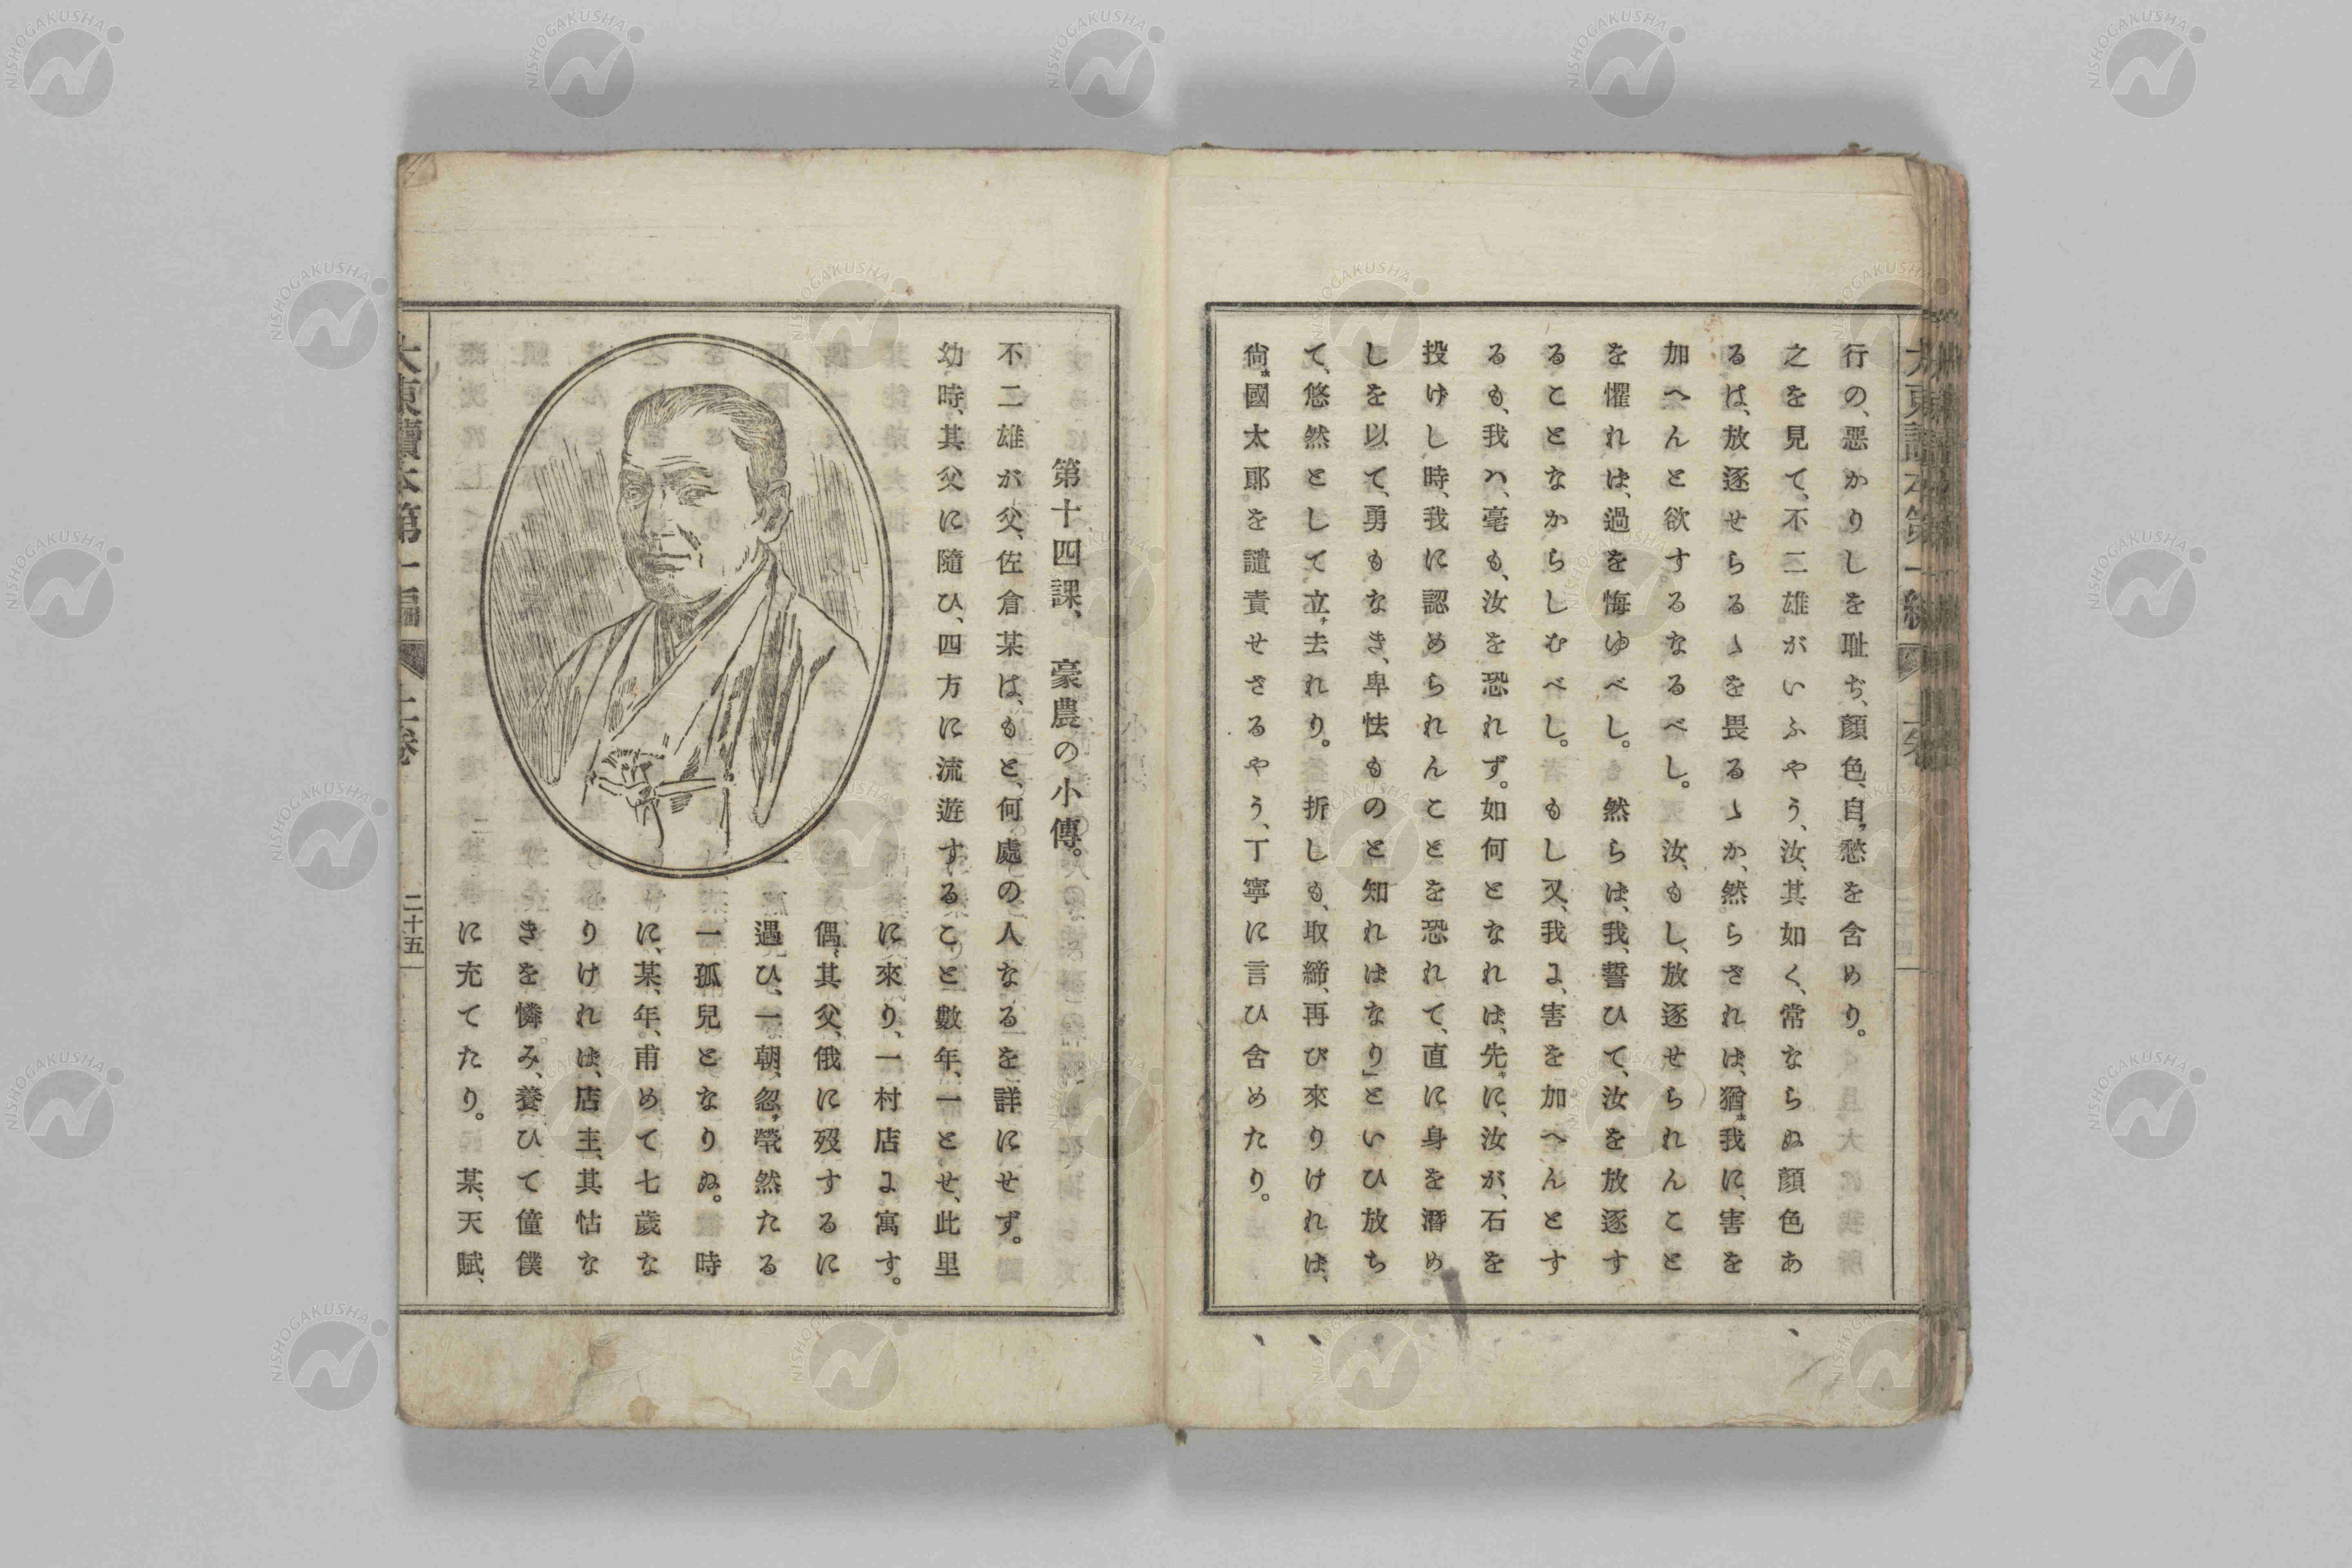 行の、惡かりしを耻ぢ、顏色、自愁を含めり。
之を見て、不二雄がいふやう、汝、其如く、常ならぬ顏色あ
るは、放逐せらるゝを畏るゝか、然らされは、猶我に、害を
加へんと欲するなるべし。汝、もし、放逐せられんこと
を懼れは、過を悔ゆべし。然らは、我、誓ひて、汝を放逐す
ることなからしむべし。もし又、我に、害を加へんとす
るも、我ハ、毫も、汝を恐れず。如何となれは、先に、汝が、石を
投げし時、我に認められんことを恐れて、直に身を潛め
しを以て、勇もなき、卑怯ものと知れはなり」といひ放ち
て、悠然として立去れり。折しも、取締、再び來りけれは、
尙國太郎を譴責せさるやう、丁寧に言ひ含めたり。
第十四課、豪農の小傳。
不二雄が父、佐倉某は、もと、何處の人なるを詳にせず。
幼時、其父に隨ひ、四方に流遊すること數年、一とせ、此里
に來り、一村店に寓す。
偶、其父、俄に歿するに
遇ひ、一朝、忽、煢然たる
一孤兒となりぬ。時
に、某、年、甫めて七歲な
りけれは、店主、其怙な
きを憐み、養ひて僮僕
に充てたり。某、天賦、
二十五